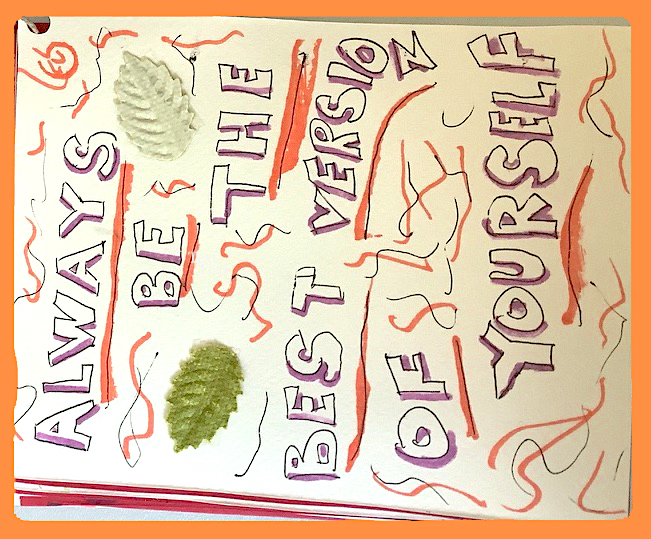 ALWAYS
BE THE
BEST VERSION
OF
YOURSELF